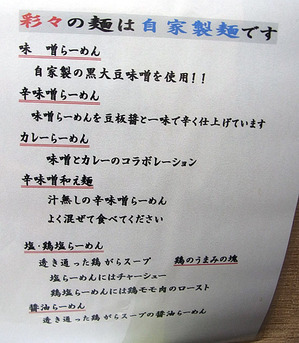 彩々の麺は自家製麺です
味 噌らーめん
自家製の黒大豆味噌を使用!!
辛味噌らーめん
味噌らーめんを豆板醤と一味で辛く仕上げています
カレーらーめん
味噌とカレーのコラボレーション
辛味噌和え麺
汁無しの辛味噌らーめん
よく混ぜて食べてください
塩・鶏塩らーめん
透き通った鶏がらスープ 鶏のうまみの塊
塩らーめんにはチャーシュー
鶏塩らーめんには鶏モモ肉のロースト
醤油らーめん
透き通った鶏がらスープの醤油らーめん